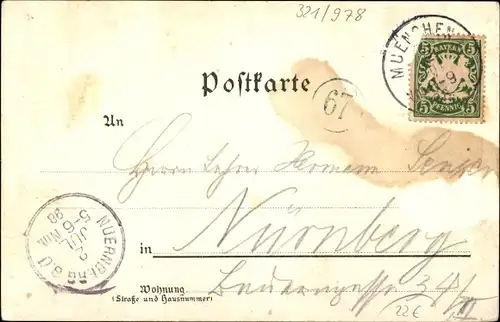 321/978
MUENCHEN
BAYERN
5 5
5 5
PFENNIG
Postkarte
67
An
Herrn Lehrer Hermann
in Nürnberg
NUERNBERG
2 JUL
5-6 Nm.
98
Wohnung
(Straße und Hausnummer)
34/III
22€